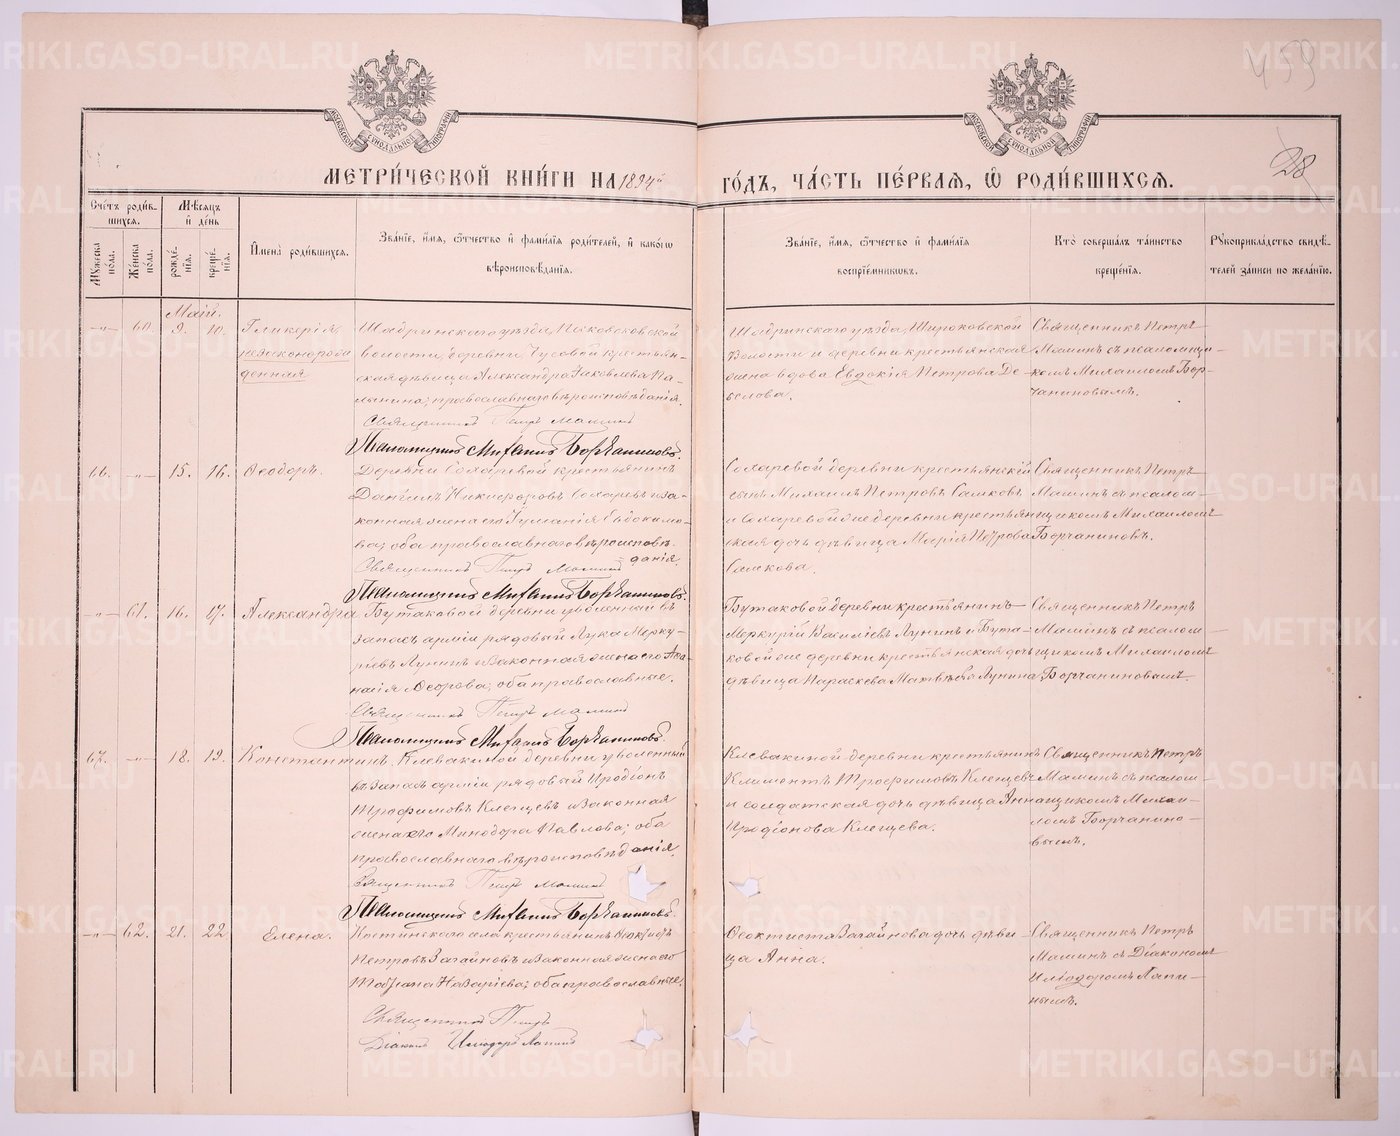 459
28
МЕТРИ́ЧЕСКОЙ КНИ́ГИ НА 1894й ГО́ДЪ, ЧА́СТЬ ПЕ́РВАЯ, Ѡ РОДИ́ВШИХСЯ.
МОСКОВСКОЙ СѴНОДАЛЬНОЙ ТИПОГРАФІИ
МОСКОВСКОЙ СѴНОДАЛЬНОЙ ТИПОГРАФІИ
Сче́тъ роди́вшихся.
Мꙋ́жеска по́ла.
Же́нска по́ла.
Мѣ́сяцъ и де́нь
рожде́нїя.
креще́нїя.
И҆мена̀ роди́вшихся.
Зва́нїе, и҆́мя, ѻ҆́тчество и҆ фами́лїя роди́телей, и҆ како́гѡ вѣроисповѣ́данїя.
Зва́нїе, и҆́мя, ѻ҆́тчество и҆ фами́лїя воспрїе́мникѡвъ.
Кто̀ соверша́лъ та́инство креще́нїя.
Рꙋкоприкла́дство свидѣ́телей за́писи по жела́нїю.
Май.
—„— 60. 9. 10.
Гликерія,
незаконорожденная
Шадринскаго уѣзда,
волости, деревни Чусовой крестьян-
ская дѣвица Александра Іаковлева Па-
лькина; православнаго вѣроисповѣданія.
Священникъ Петръ Маминъ
Псаломщикъ Михаилъ Борчаниновъ.
Шадринскаго уѣзда, Широковской
волости и деревни крестьянская
жена вдова Евдокія Петрова
Священникъ Петръ
Маминъ съ псаломщи-
комъ Михаиломъ Бор-
чаниновымъ.
66. —„— 15. 16. Ѳеодоръ.
Деревни Сохаревой крестьянинъ
Даніилъ Никифоровъ Сохаревъ и за-
конная жена его Іулианія Евдокимо-
ва; оба православнаго вѣроисповѣ-
данія.
Священникъ Петръ Маминъ
Псаломщикъ Михаилъ Борчаниновъ.
Сохаревой деревни крестьянскій
сынъ Михаилъ Петровъ Сажковъ
и Сохаревой же деревни крестьян-
ская дочь дѣвица Марія Петрова
Сажкова.
Священникъ Петръ
Маминъ съ псалом-
щикомъ Михаиломъ
Борчаниновъ.
—„— 61. 16. 17. Александра
Бутаковой деревни уволенный въ
запасъ арміи рядовый Лука Мерку-
ріевъ Лунинъ и законная жена его Ана-
нія Ѳеорова; оба православные.
Священникъ Петръ Маминъ
Псаломщикъ Михаилъ Борчаниновъ.
Бутаковой деревни крестьянинъ
Меркурій Василіевъ Лунинъ и Бута-
ковой же деревни крестьянская дочь
дѣвица Параскева Матвѣева Лунина.
Священникъ Петръ
Маминъ съ псалом-
щикомъ Михаиломъ
Борчаниновымъ.
67. —„— 18. 19. Константинъ.
Клевакиной деревни уволенный
въ запасъ арміи рядовый Иродіонъ
Трофимовъ Клепцевъ и законная
жена его Минодора Павлова; оба
православнаго вѣроисповѣданія.
Священникъ Петръ Маминъ
Псаломщикъ Михаилъ Борчаниновъ.
Клевакиной деревни крестьянинъ
Климентъ Трофимовъ Клепцевъ
и солдатская дочь дѣвица Анна
Иродіонова Клепцева.
Священникъ Петръ
Маминъ съ псалом-
щикомъ Михаи-
ломъ Борчанино-
вымъ.
—„— 62. 21. 22. Елена.
Костинского села крестьянинъ Ѳеоктистъ
Петровъ Загайновъ и законная жена его
Татіана Назаріева; оба православные.
Священникъ Петръ
Діаконъ Илиодоръ Лапинъ
Ѳеоктиста Загайнова дочь дѣви-
ца Анна.
Священникъ Петръ
Маминъ съ Діакономъ
Илиодоромъ Лапи-
нымъ.
METRIKI.GASO-URAL.RU